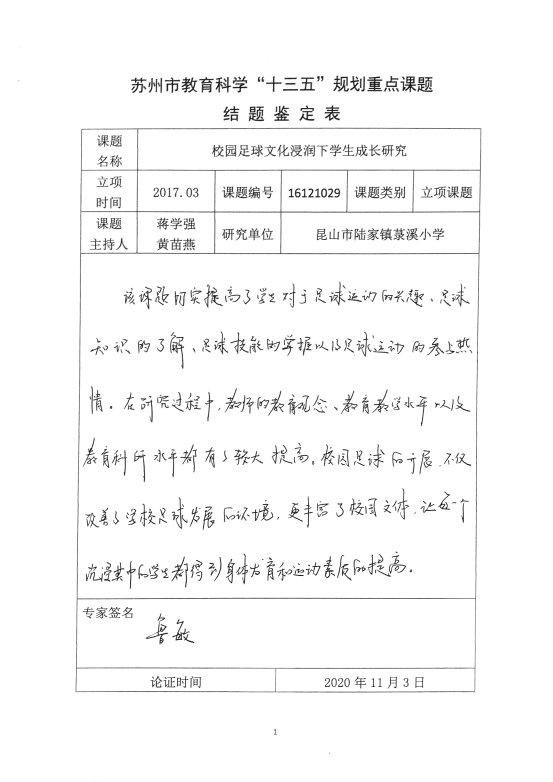 苏州市教育科学“十三五”规划重点课题
结 题 鉴 定 表
课题
名称
校园足球文化浸润下学生成长研究
立项
时间
2017.03
课题编号
16121029
课题类别
立项课题
课题
主持人
蒋学强
黄苗燕
研究单位
昆山市陆家镇菉溪小学
该课题切实提高了学生对于足球运动的兴趣、足球
知识的了解、足球技能的掌握以及足球运动的参与热
情。在研究过程中,教师的教育观念、教育教学水平以及
教育科研水平都有了较大提高。校园足球的开展,不仅
改善了学校足球发展的环境,更丰富了校园文体,让每一个
沉浸其中的学生都得到身体发育和运动素质的提高。
专家签名
鲁敏
论证时间
2020 年 11 月 3 日
1